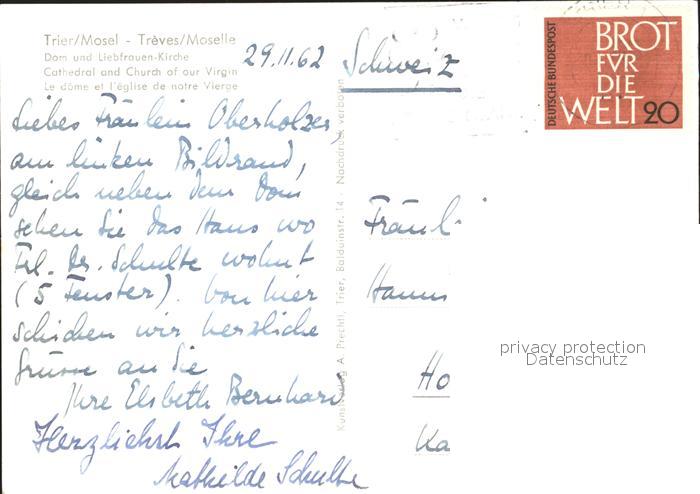 Trier/Mosel - Trèves/Moselle
Dom und Liebfrauen-Kirche
Cathedral and Church of our Virgin
Le dôme et l'église de notre Vierge
29.11.62
Schweiz
DEUTSCHE BUNDESPOST
BROT
FÜR
DIE
WELT 20
Liebes Fräulein Oberholzer,
am linken Bildrand,
gleich neben dem Dom
sehen Sie das Haus wo
Frl. Dr. Schulte wohnt
(5 Fenster). Von hier
schicken wir herzliche
Grüsse an Sie
Ihre Elsbeth Bernhard
Herzlichst Ihre
Mathilde Schulte
Kunstverlag A. Prechtl, Trier, Balduinstr. 14 · Nachdruck verboten
Fräul
Hanni
Ho
Ka
privacy protection
Datenschutz